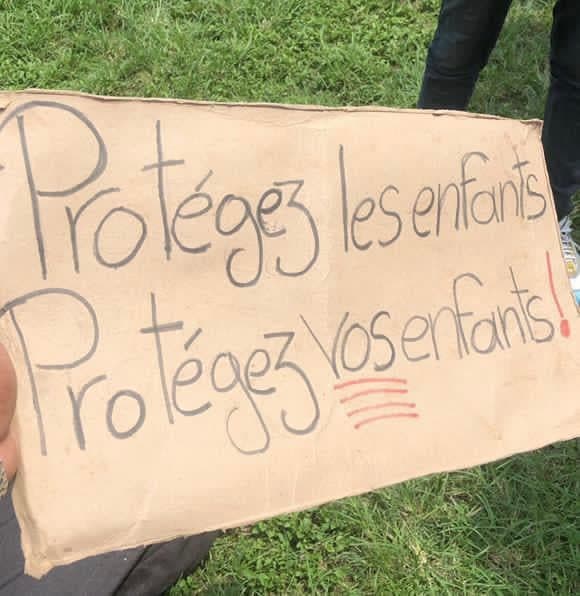 Protégez les enfants
Protégez vos enfants!